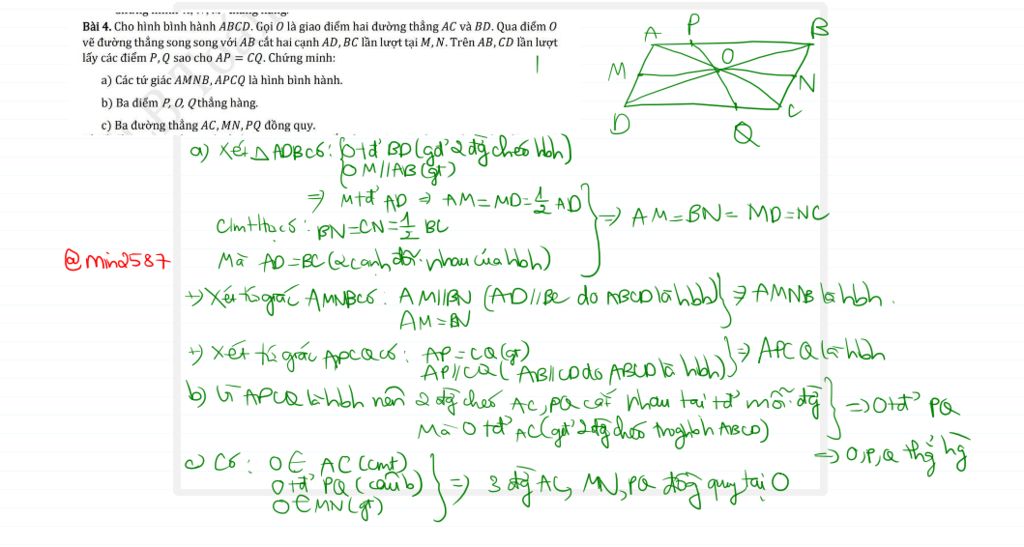 Bài 4. Cho hình bình hành ABCD. Gọi O là giao điểm hai đường thẳng AC và BD. Qua điểm O
vẽ đường thẳng song song với AB cắt hai cạnh AD, BC lần lượt tại M, N. Trên AB, CD lần lượt
lấy các điểm P, Q sao cho AP = CQ. Chứng minh:
a) Các tứ giác AMNB, APCQ là hình bình hành.
b) Ba điểm P, O, Q thẳng hàng.
c) Ba đường thẳng AC, MN, PQ đồng quy.
A P B
O
M N
D Q C
a) Xét △ADB có: { O tđ BD (gđ 2 đg chéo hbh)
OM // AB (gt)
⇒ M tđ AD ⇒ AM = MD = 1/2 AD
Cmtt có: BN = CN = 1/2 BC
Mà AD = BC (2 cạnh đối nhau của hbh)
} ⇒ AM = BN = MD = NC
@min2587
+) Xét tứ giác AMNB có: AM // BN (AD // BC do ABCD là hbh)
AM = BN
} ⇒ AMNB là hbh.
+) Xét tứ giác APCQ có: AP = CQ (gt)
AP // CQ (AB // CD do ABCD là hbh)
} ⇒ APCQ là hbh
b) Vì APCQ là hbh nên 2 đg chéo AC, PQ cắt nhau tại tđ mỗi đg
Mà O tđ AC (gđ 2 đg chéo trog hbh ABCD)
} ⇒ O tđ PQ
⇒ O, P, Q thg hg
c) Có: O ∈ AC (cmt)
O tđ PQ (câu b)
O ∈ MN (gt)
} ⇒ 3 đg AC, MN, PQ đồng quy tại O